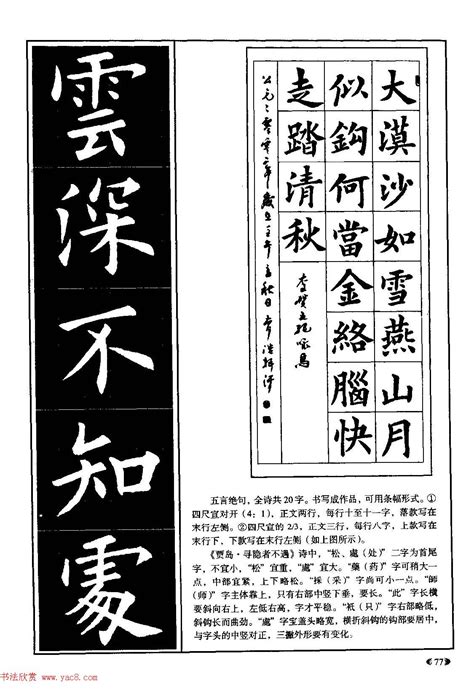 雲深不知處
大漠沙如雪燕山月
似鈎何當金絡腦快
走踏清秋
公元二零零二年歲在壬午
五言绝句，全诗共20字。书写成作品，可用条幅形式。①
四尺宣对开（4：1），正文两行，每行十至十一字，落款写在
末行左侧。②四尺宣的2/3，正文三行，每行八字，上款写在
末行下，下款写在末行左侧（如上图所示）。
《贾岛·寻隐者不遇》诗中，“松、處(处)”二字为首尾
字，不宜小，“松”宜重，“處”宜大。“藥（药）”字可稍大一
点，中部宜紧，上下略松。“採（采）”字尚可小一点。“師
（师）”字主体靠上，只有右部中竖下垂，要长。“此”字长横
要斜向右上，左低右高，字才平稳。“衹（只）”字右部略低，
斜钩长而曲劲。“處”字宝盖头略宽，横折斜钩的钩部要居中，
与字头的中竖对正，三撇外形要有变化。
77
书法欣赏 www.yac8.com